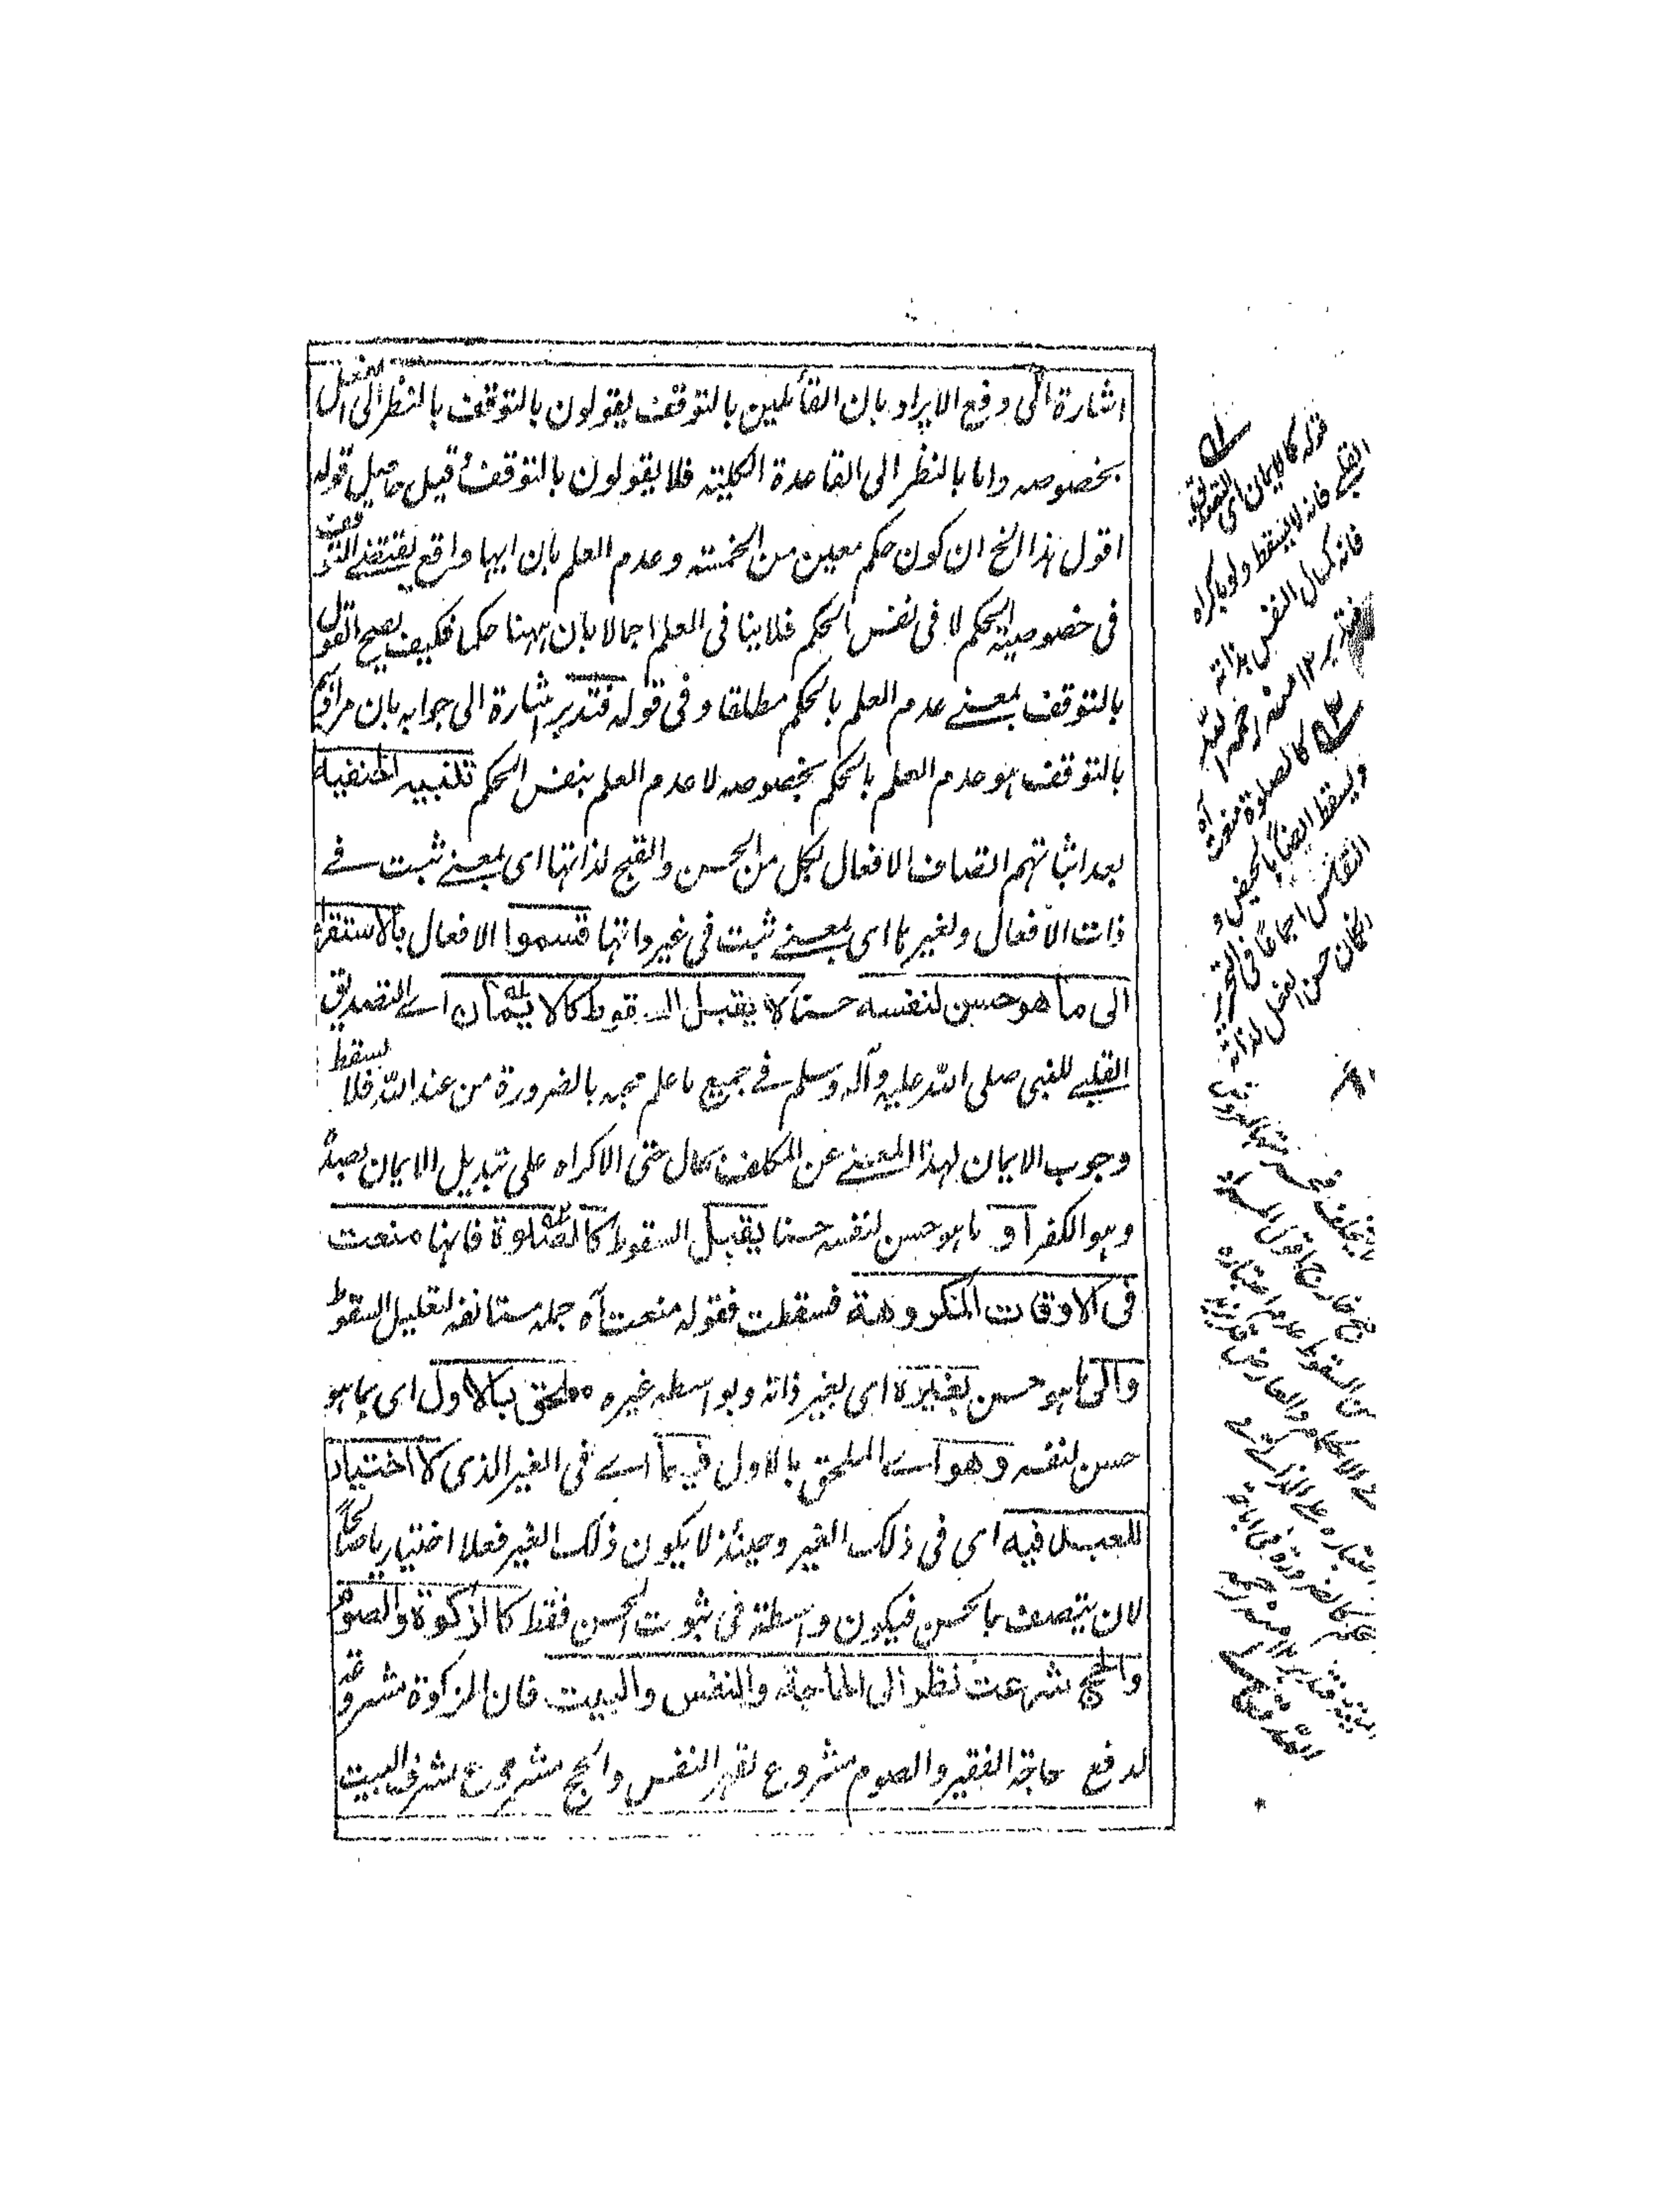 اشارة الى دفع الايراد بان القائلين بالتوقف يقولون بالتوقف بالنظر الى الفعل
بخصوصه واما بالنظر الى القاعدة الكلية فلا يقولون بالتوقف قيل حاصل قوله
اقول هذا الخ ان كون حكم معين من الخمسة وعدم العلم بان ايها واقع يقتضے التوقف
فى خصوصية الحكم لا فى نفس الحكم فلا ينافى العلم اجمالا بان ههنا حكما فكيف يصح القول
بالتوقف بمعنے عدم العلم بالحكم مطلقا وفى قوله فتدبر اشارة الى جوابه بان مرادهم
بالتوقف هو عدم العلم بالحكم بخصوصه لا عدم العلم بنفس الحكم تنبيه الحنفية
بعد اثباتهم اتصاف الافعال لكل من الحسن والقبح لذاتها اى بمعنے ثبت فے
ذات الافعال ولغيرها اى بمعنے ثبت فى غير ذاتها قسموا الافعال بالاستقراء
الى ما هو حسن لنفسه حسنا لا يقبل السقوط كالايمان اے التصديق
القلبے للنبى صلى الله عليه وآله وسلم فے جميع ما علم مجيه بالضرورة من عند الله فلا يسقط
وجوب الايمان لهذا المعنے عن المكلف بحال حتى الاكراه على تبديل الايمان بضده
وهو الكفر او ما هو حسن لنفسه حسنا يقبل السقوط كالصلوة فانها منعت
فى الاوقات المكروهة فسقطت فقوله منعت آه جملة مستانفة لتعليل السقوط
والى ما هو حسن لغيره اى لغير ذاته وبواسطة غيره ملحق بالاول اى بما هو
حسن لنفسه وهو اے الملحق بالاول فيما اے فى الغير الذى لا اختيار
للعبد فيه اى فى ذلك الغير وحينئذ لا يكون ذلك الغير فعلا اختياريا صالحا
لان يتصف بالحسن فيكون واسطة فى ثبوت الحسن فقط كالزكوة والصوم
والحج شرعت نظرا الى الحاجة والنفس والبيت فان الزكوة مشروعة
لدفع حاجة الفقير والصوم مشروع لقهر النفس والحج مشروع لشرف البيت
قوله كالايمان اى التصديق
القلبے فانه لا يسقط ولو باكراه
فانه كمال النفس بذاته
فتدبر ١٢ منه رحمه الله
كالصلوة منعت آه
ويسقط ايضا بالحيض و
النفاس اجماعا فى التحرير
ان كان حسن الفعل لذاته